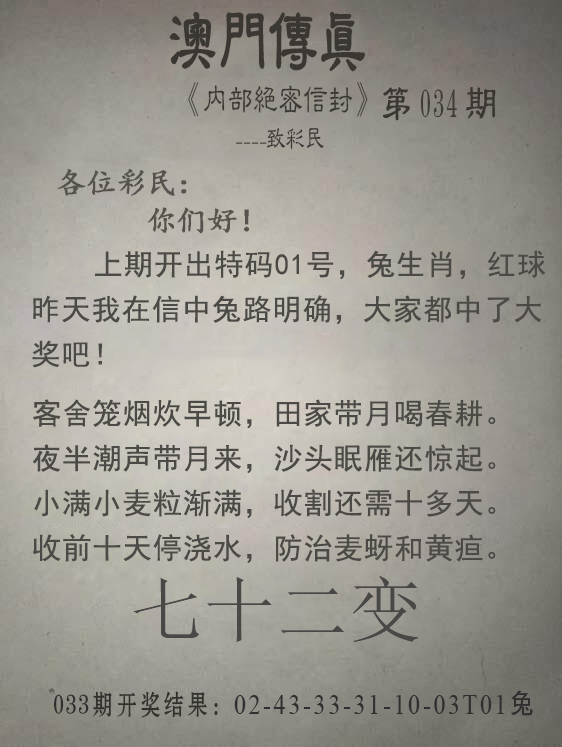 澳門傳真
《内部絕密信封》第034期
----致彩民
各位彩民：
你们好！
上期开出特码01号，兔生肖，红球
昨天我在信中兔路明确，大家都中了大
奖吧！
客舍笼烟炊早顿，田家带月喝春耕。
夜半潮声带月来，沙头眠雁还惊起。
小满小麦粒渐满，收割还需十多天。
收前十天停浇水，防治麦蚜和黄疸。
七十二变
033期开奖结果：02-43-33-31-10-03T01兔